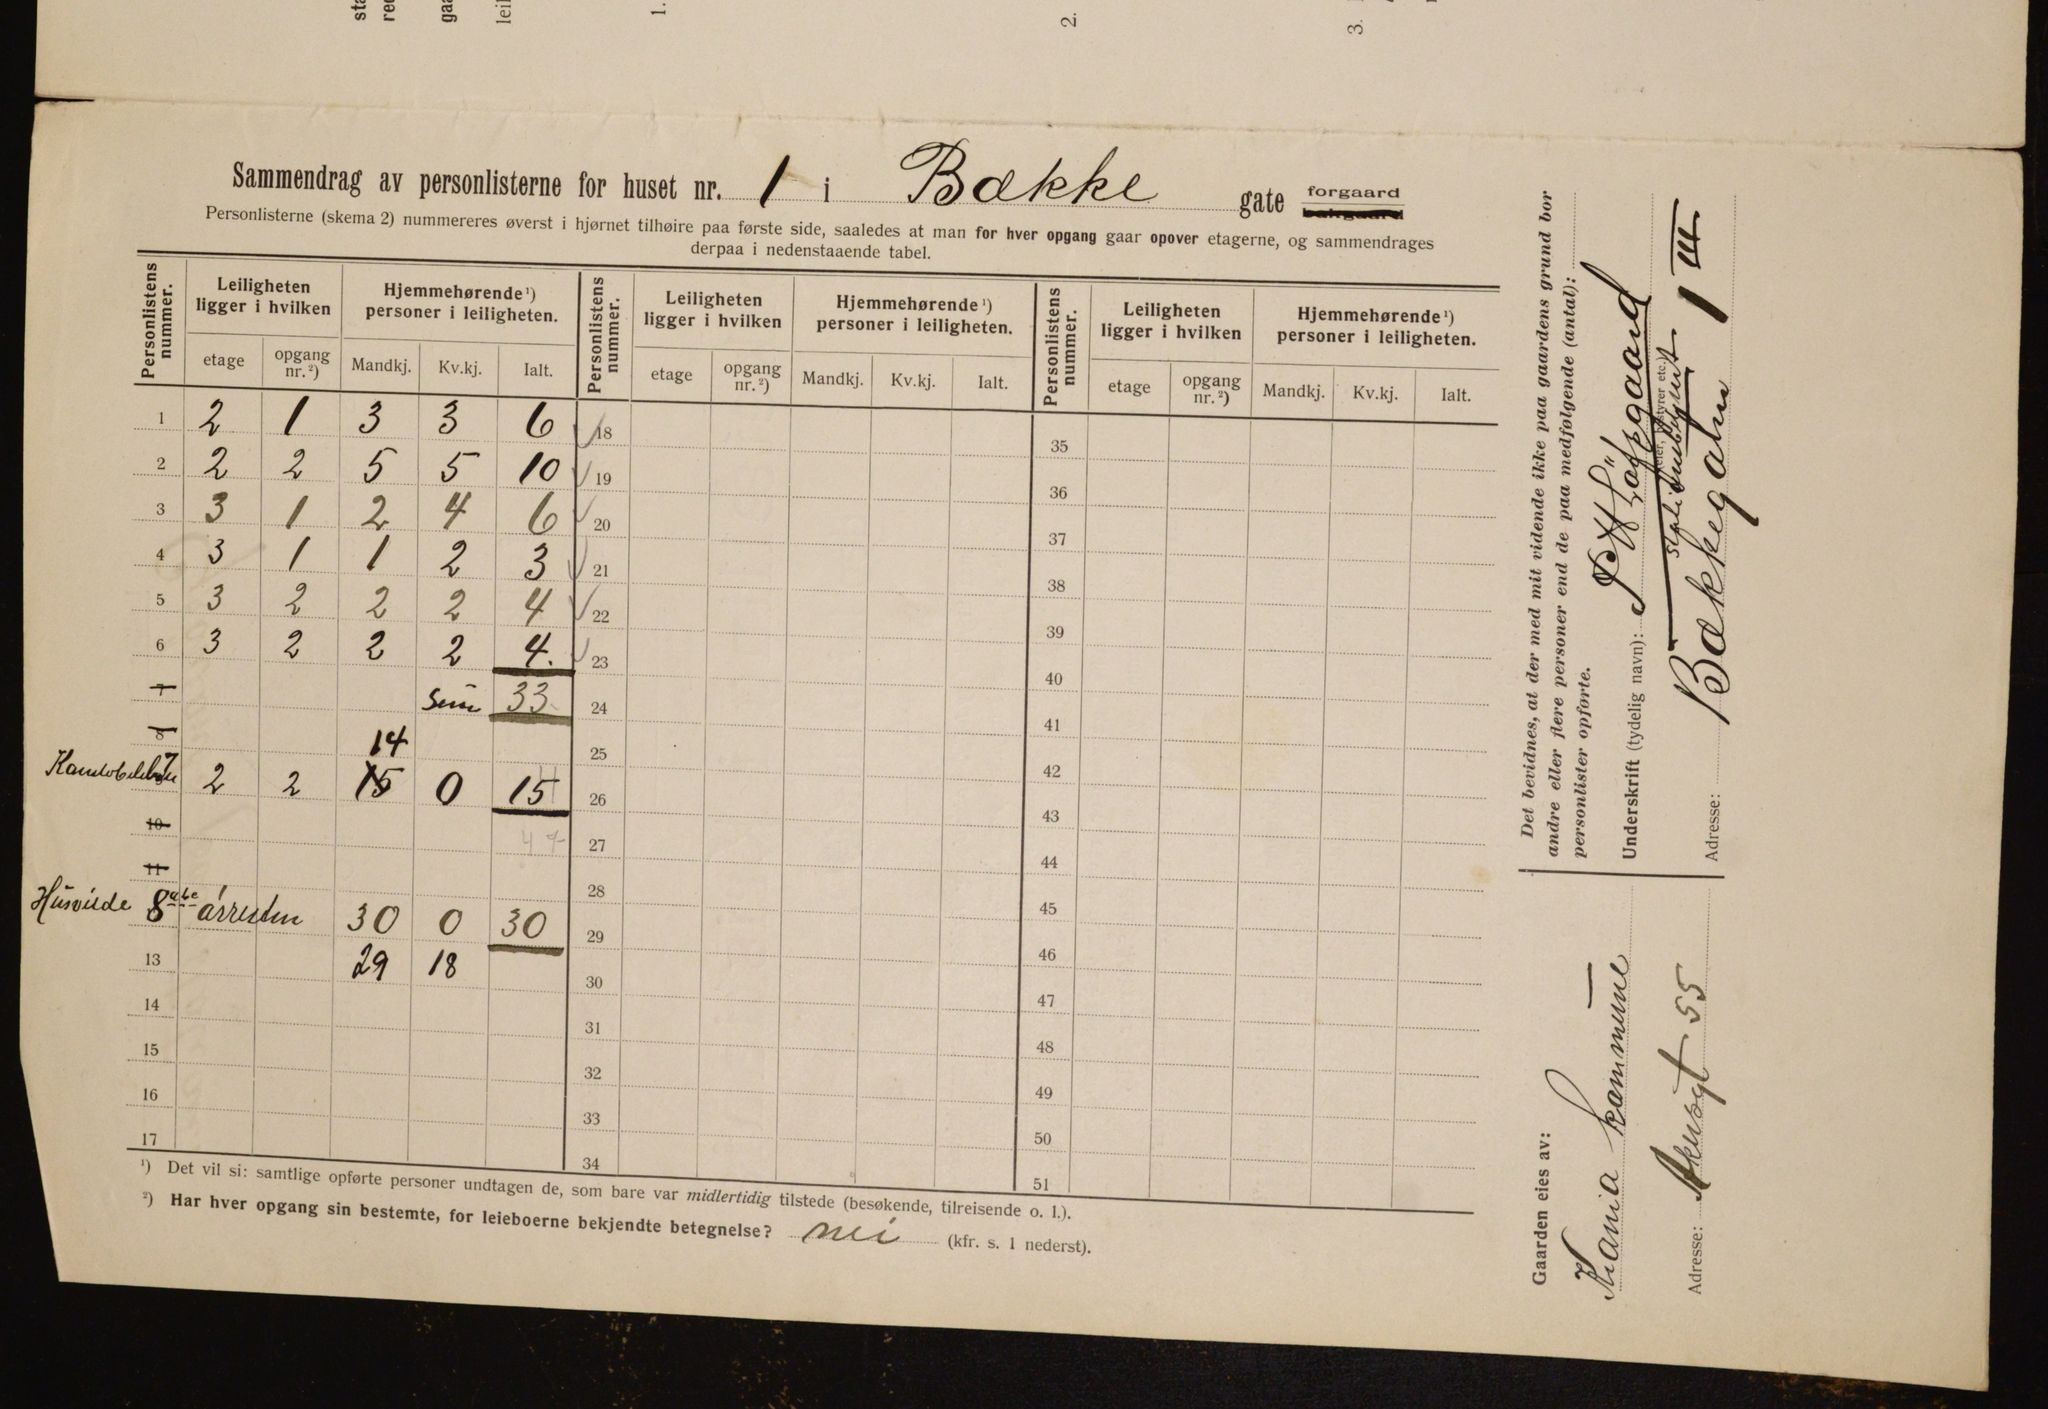 sta
red
gaa
leil
1.
2.
3.
Sammendrag av personlisterne for huset nr. 1 i Bække gate forgaard
bakgaard
Personlisterne (skema 2) nummereres øverst i hjørnet tilhøire paa første side, saaledes at man for hver opgang gaar opover etagerne, og sammendrages
derpaa i nedenstaaende tabel.
Personlistens nummer. Leiligheten ligger i hvilken Hjemmehørende ¹) personer i leiligheten. Personlistens nummer. Leiligheten ligger i hvilken Hjemmehørende ¹) personer i leiligheten. Personlistens nummer. Leiligheten ligger i hvilken Hjemmehørende ¹) personer i leiligheten.
etage opgang nr. ²) Mandkj. Kv.kj. Ialt. etage opgang nr. ²) Mandkj. Kv.kj. Ialt. etage opgang nr. ²) Mandkj. Kv.kj. Ialt.
1 2 1 3 3 6 18 35
2 2 2 5 5 10 19 36
3 3 1 2 4 6 20 37
4 3 1 1 2 3 21 38
5 3 2 2 2 4 22 39
6 3 2 2 2 4. 23 40
7 Sum 33 24 41
8 14 25 42
7 2 2 15 0 15 26 43
10 47 27 44
11 28 45
Husvilde 8 arresten 30 0 30 29 46
13 29 18 30 47
14 31 48
15 32 49
16 33 50
17 34 51
¹) Det vil si: samtlige opførte personer undtagen de, som bare var midlertidig tilstede (besøkende, tilreisende o. l.).
²) Har hver opgang sin bestemte, for leieboerne bekjendte betegnelse? nei (kfr. s. 1 nederst).
Det bevidnes, at der med mit vidende ikke paa gaardens grund bor
andre eller flere personer end de paa medfølgende (antal):
personlister opførte.
Underskrift (tydelig navn):
(eier, bestyrer etc.)
Adresse: Bækkegaten 1 III
Gaarden eies av:
Kania kommune
Adresse: Akersgt 55